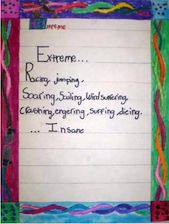 Extreme
Extreme...
Racing, jumping,
Soaring, Sailing, Wind surfering,
Crashing, engering, surfing, dicing.
... Insane